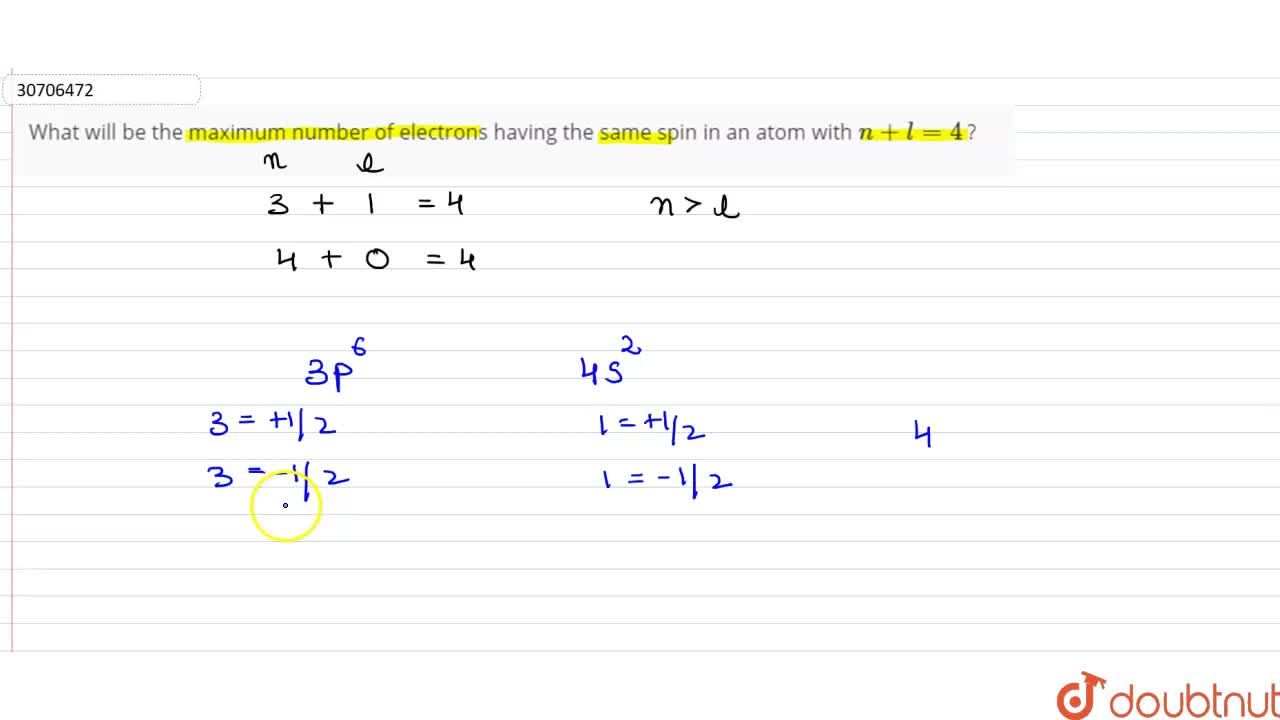 30706472
What will be the maximum number of electrons having the same spin in an atom with n + l = 4 ?
n l
3 + 1 = 4 n > l
4 + 0 = 4
3p⁶ 4s²
3 = +1/2 1 = +1/2 4
3 = -1/2 1 = -1/2
doubtnut